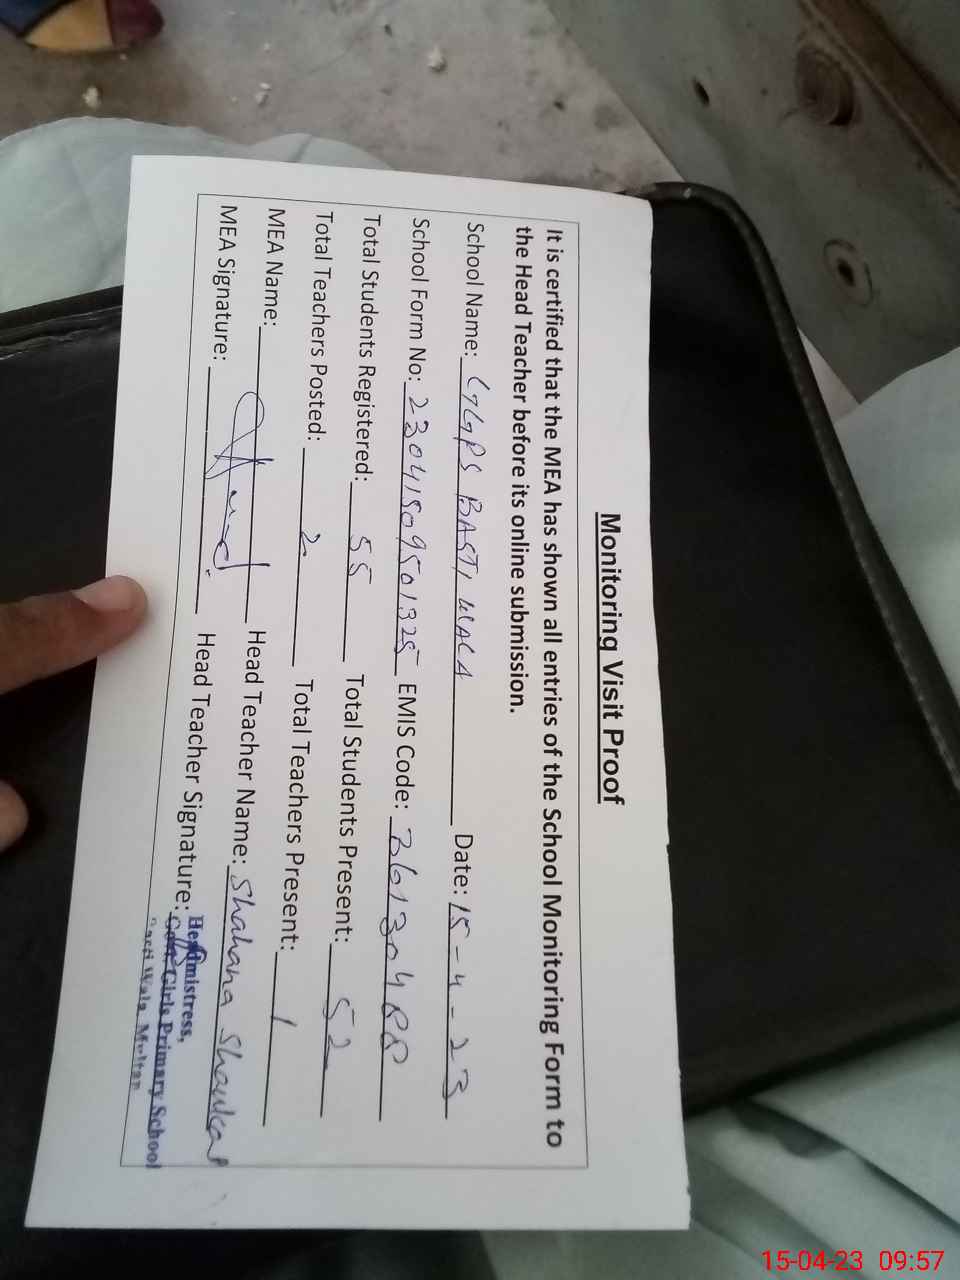 Monitoring Visit Proof
It is certified that the MEA has shown all entries of the School Monitoring Form to
the Head Teacher before its online submission.
School Name: GGPS BASTI WALA Date: 15-4-23
School Form No: 23041509501325 EMIS Code: 36130488
Total Students Registered: 55 Total Students Present: 52
Total Teachers Posted: 2 Total Teachers Present: 1
MEA Name: Head Teacher Name: Shahana Shaukat
MEA Signature: Head Teacher Signature:
Headmistress,
Govt. Girls Primary School
Basti Wala Multan
15-04-23 09:57